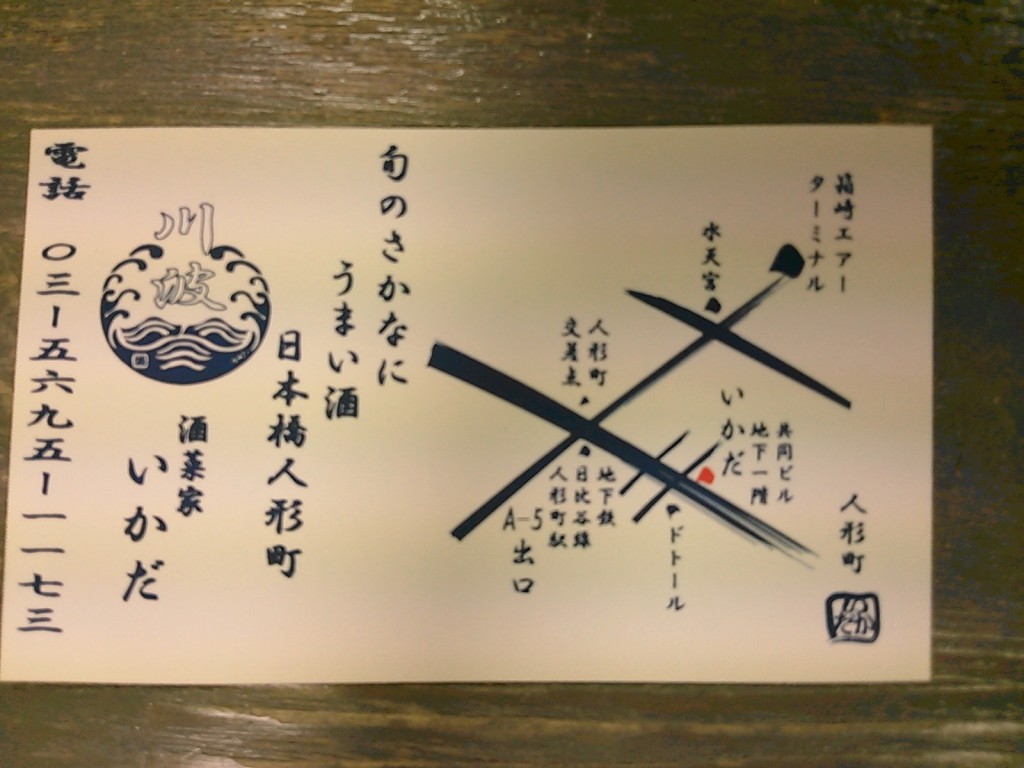 箱崎エアー
ターミナル
水天宮
人形町
交差点
いかだ
共同ビル
地下一階
地下鉄
日比谷線
人形町駅
A-5
出口
ドトール
人形町
いかだ
旬のさかなに
うまい酒
日本橋人形町
川波
酒菜家
いかだ
電話 〇三-五六九五-一一七三